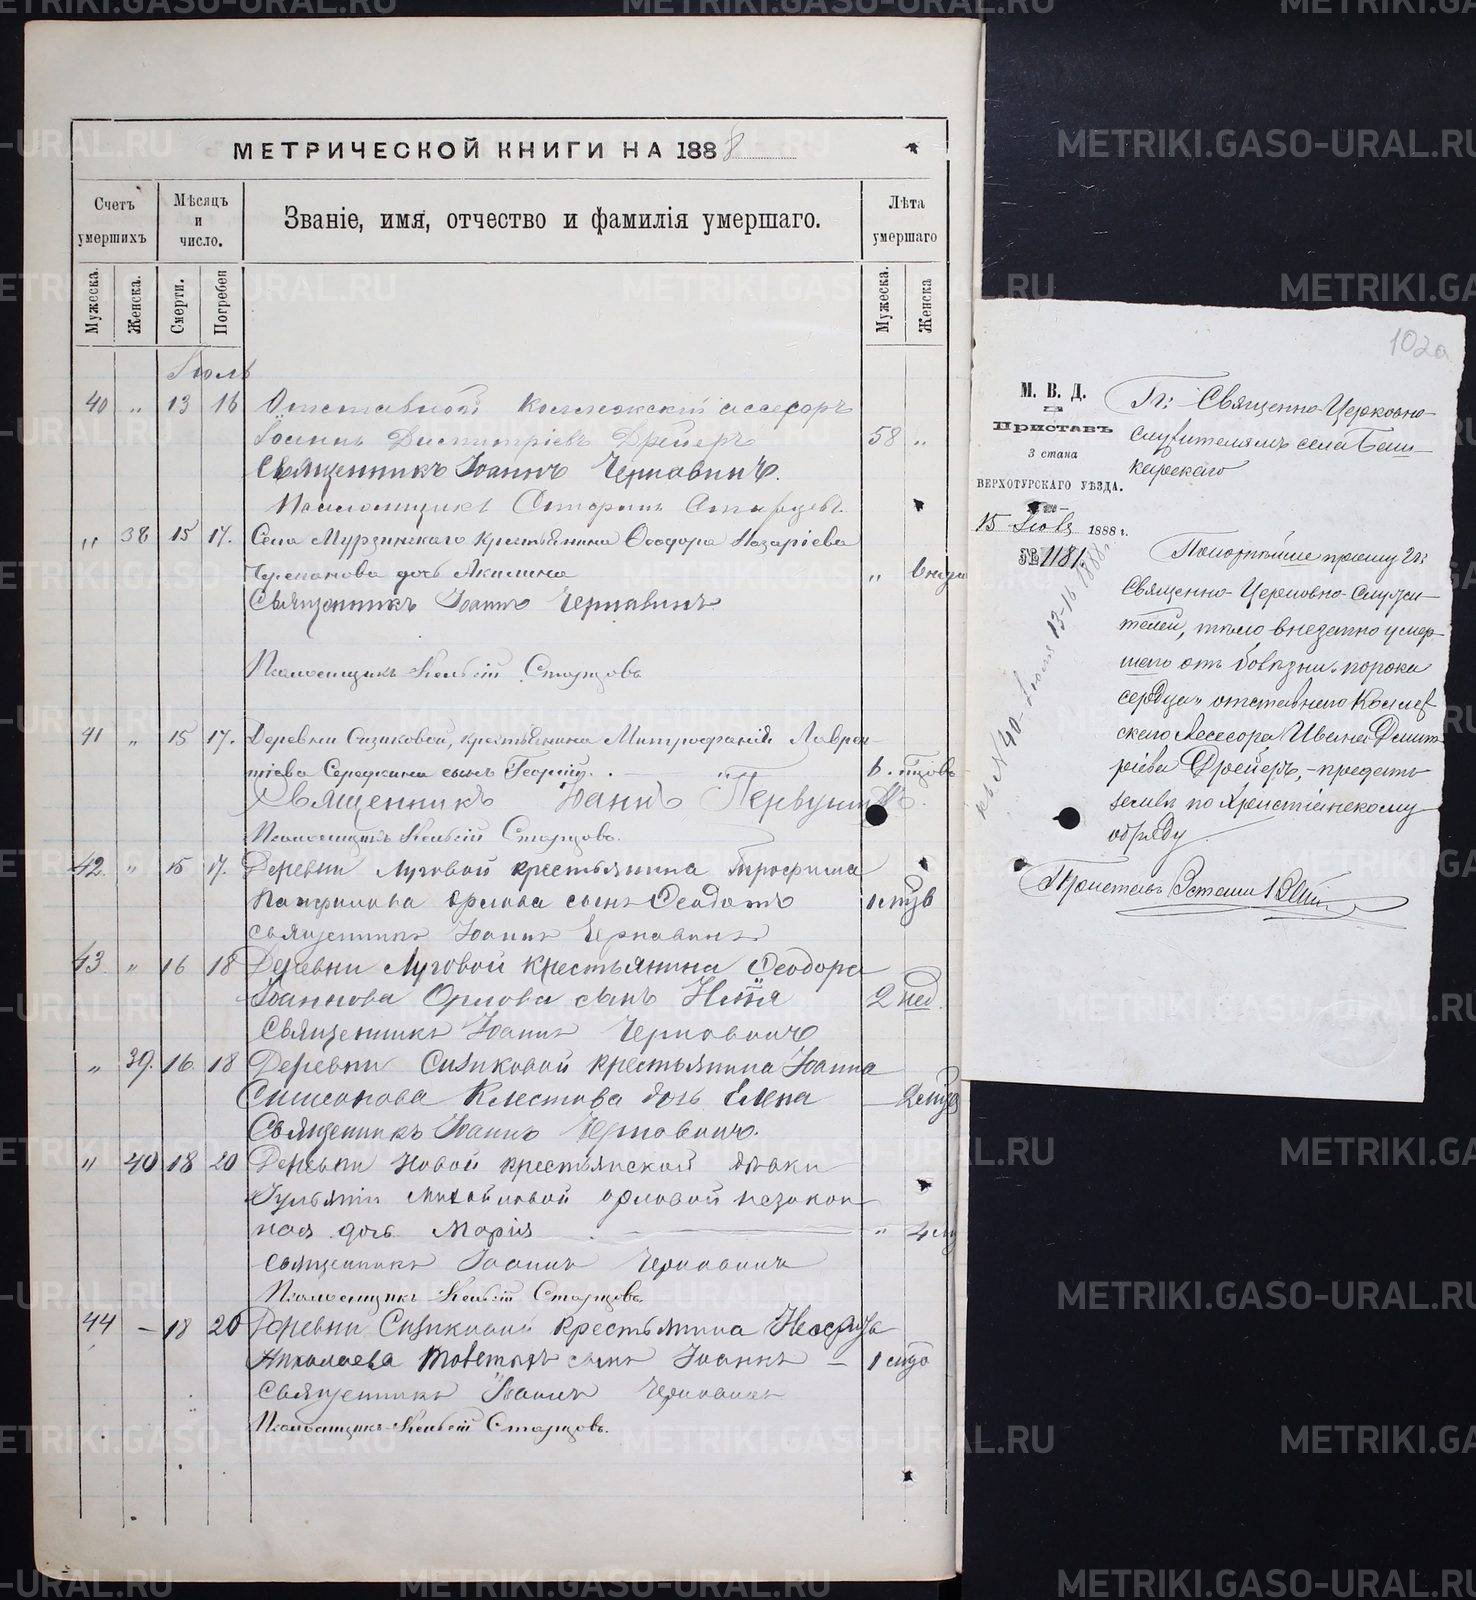 МЕТРИЧЕСКОЙ КНИГИ НА 1888
Счетъ умершихъ
Мѣсяцъ и число.
Званіе, имя, отчество и фамилія умершаго.
Лѣта умершаго
Мужеска.
Женска.
Смерти.
Погребен
Мужеска.
Женска
Іюль
40 „ 13 16 Отставной Коллежскій ассесоръ
Іоаннъ Димитріевъ Дрейеръ 58 „
Священникъ Іоаннъ Чернавинъ.
Псаломщикъ Старцевъ.
„ 38 15 17. Села Мурзинскаго крестьянина Ѳеодора Назаріева
Черепанова дочь Акилина „
Священникъ Іоаннъ Чернавинъ
Псаломщикъ Старцовъ
41 „ 15 17. Деревни Сизиковой, крестьянина Митрофанія Лаврен-
тіева Середкина сынъ Георгій.
Священникъ Іоаннъ Первушинъ.
Псаломщикъ Старцовъ.
42. „ 15 17. Деревни Луговой крестьянина Трофима
Панфилова Орлова сынъ Ѳеодотъ
Священникъ Іоаннъ Чернавинъ
43. „ 16 18 Деревни Луговой крестьянина Ѳеодора
Іоаннова Орлова сынъ Илія 2 нед.
Священникъ Іоаннъ Чернавинъ
„ 39. 16 18 Деревни Сизиковой крестьянина Іоанна
Симеонова Клестова дочь Елена
Священникъ Іоаннъ Чернавинъ.
„ 40 18 20 Деревни Новой крестьянской дѣвки
Михайловой Орловой незакон-
ная дочь Марія „
Священникъ Іоаннъ Чернавинъ
Псаломщикъ Старцовъ
44 – 18 20 Деревни Сизиковой крестьянина
Николаева сынъ Іоаннъ –
Священникъ Іоаннъ Чернавинъ
Псаломщикъ Старцовъ.
102а
М. В. Д.
Приставъ
3 стана
ВЕРХОТУРСКАГО УѢЗДА.
15 Іюля 1888 г.
№ 1181.
къ № 40 – Іюля 13-16 1888 г.
Гг. Священно-Церковно-
служителямъ села Баш-
карскаго
Покорнѣйше прошу Гг.
Священно-Церковно-Служи-
телей, тѣло внезапно умер-
шаго отъ болѣзни „порока
сердца“ отставнаго Коллеж
скаго Ассесора Ивана Дмит-
ріева Дрейеръ, – предать
землѣ по Христіанскому
обряду.
Приставъ
METRIKI.GASO-URAL.RU